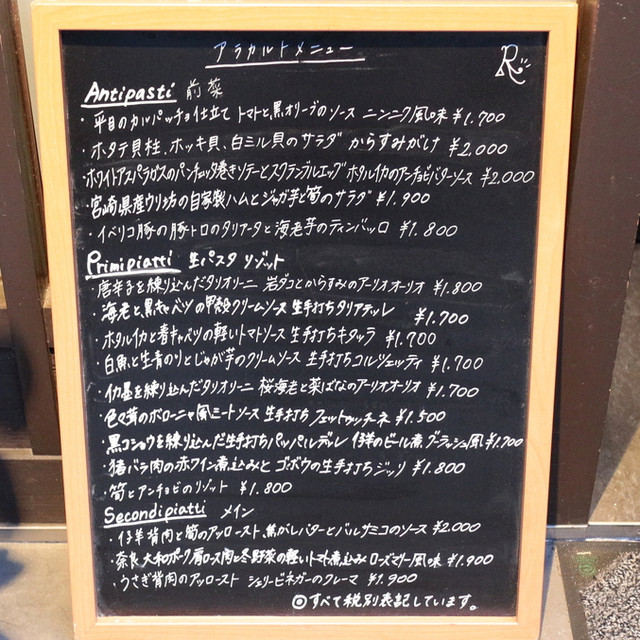 アラカルトメニュー
R
Antipasti 前菜
・平目のカルパッチョ仕立て トマトと黒オリーブのソース ニンニク風味 ¥1.700
・ホタテ貝柱、ホッキ貝、白ミル貝のサラダ からすみがけ ¥2.000
・ホワイトアスパラガスのパンチェッタ巻きソテーとスクランブルエッグ ホタルイカのアンチョビバターソース ¥2.000
・宮崎県産ウリ坊の自家製ハムとジャガ芋と筍のサラダ ¥1.900
・イベリコ豚の豚トロのタリアータと海老芋のティンバッロ ¥1.800
Primipiatti 生パスタ リゾット
・唐辛子を練り込んだタリオリーニ 岩ダコとからすみのアーリオオーリオ ¥1.800
・海老と黒キャベツの甲殻クリームソース 生手打ちタリアテッレ ¥1.700
・ホタルイカと春キャベツの軽いトマトソース 生手打ちキタッラ ¥1.700
・白魚と生青のりとじゃが芋のクリームソース 生手打ちコルツェッティ ¥1.700
・イカ墨を練り込んだタリオリーニ 桜海老と菜ばなのアーリオオーリオ ¥1.700
・色々茸のボローニャ風ミートソース 生手打ちフェットゥッチーネ ¥1.500
・黒コショウを練り込んだ生手打ちパッパルデッレ 仔羊のビール煮 グーラッシュ風 ¥1.700
・猪バラ肉の赤ワイン煮込みと ゴボウの生手打ちジッリ ¥1.800
・筍とアンチョビのリゾット ¥1.800
Secondipiatti メイン
・仔羊背肉と筍のアッロースト 焦がしバターとバルサミコのソース ¥2.000
・奈良、大和ポーク肩ロース肉と冬野菜の軽いトマト煮込み ローズマリー風味 ¥1.900
・うさぎ背肉のアッロースト シェリービネガーのクレーマ ¥1.900
◎すべて税別表記しています。